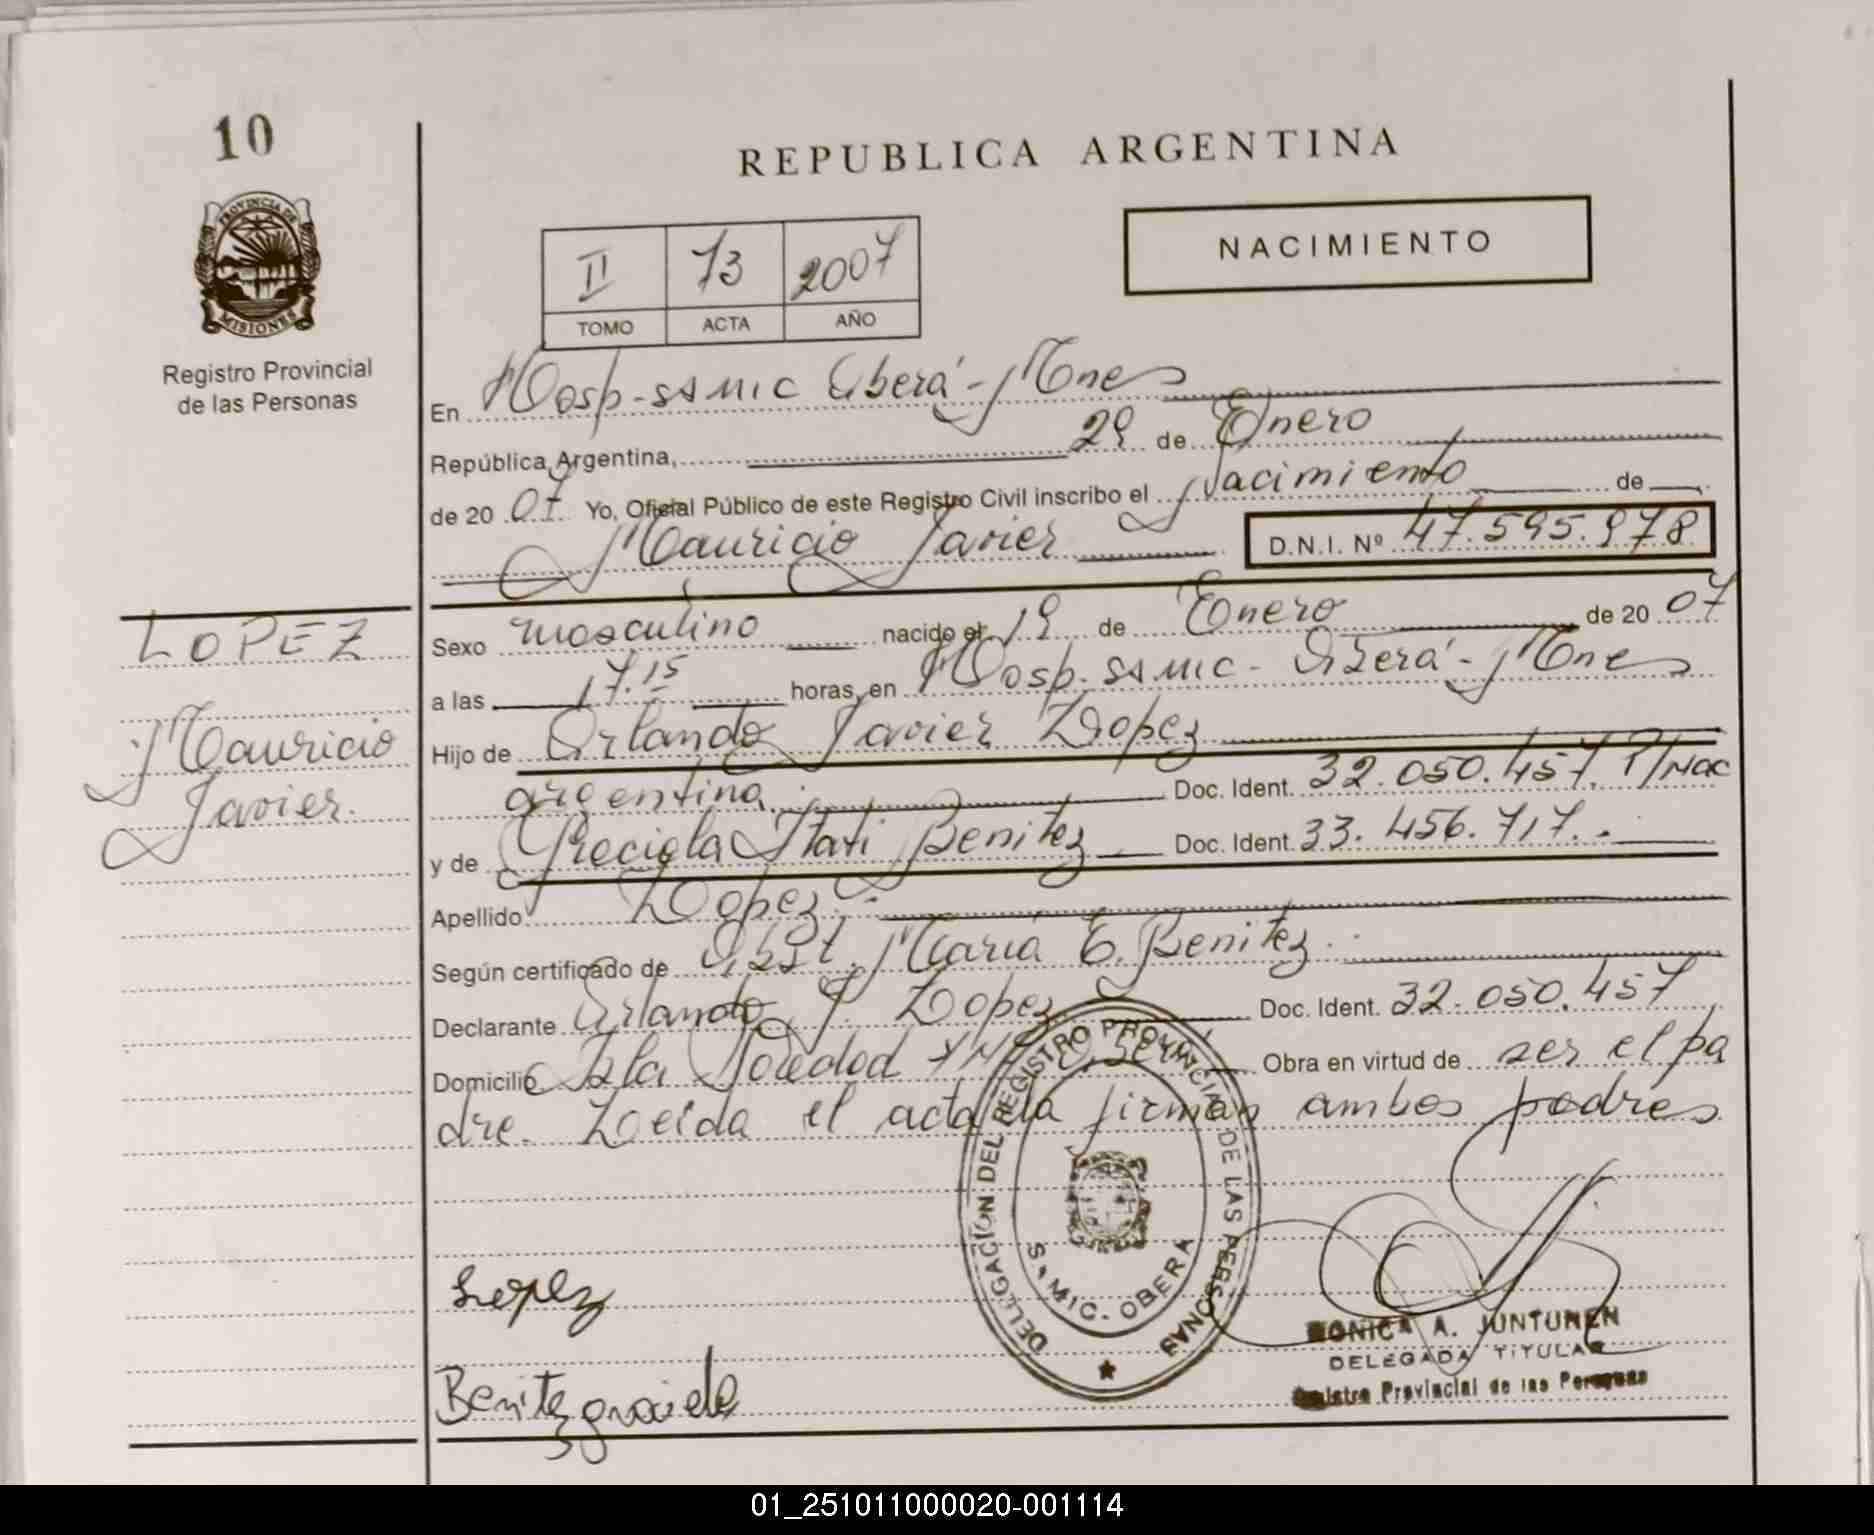 10
REPUBLICA ARGENTINA
PROVINCIA DE
MISIONES
Registro Provincial
de las Personas
II 73 2007
TOMO ACTA AÑO
NACIMIENTO
En Hosp. SAMIC Oberá - Mnes
República Argentina, 29 de Enero
de 20 07 Yo, Oficial Público de este Registro Civil inscribo el Nacimiento de
Mauricio Javier D.N.I. Nº 47.595.978
LOPEZ
Mauricio
Javier.
Sexo masculino nacido el 19 de Enero de 20 07
a las 17.15 horas, en Hosp. SAMIC - Oberá - Mnes
Hijo de Orlando Javier Lopez
argentina Doc. Ident. 32.050.457. P/Nac
y de Graciela Itati Benitez Doc. Ident. 33.456.717.-
Apellido Lopez.-
Según certificado de Obst. María E. Benitez.-
Declarante Orlando J. Lopez Doc. Ident. 32.050.457
Domicilio Isla Soledad Obra en virtud de ser el pa
dre. Leida el acta la firman ambos padres
DELEGACIÓN DEL REGISTRO PROVINCIAL DE LAS PERSONAS
SAMIC. OBERA
Lopez
Benitez graciela
MONICA A. JUNTUNEN
DELEGADA TITULAR
Registro Provincial de las Personas
01_251011000020-001114